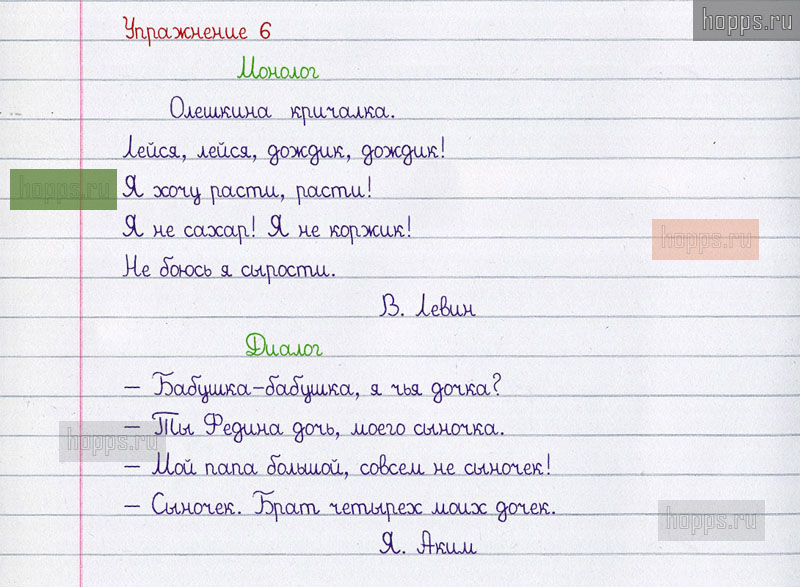 hopps.ru
Упражнение 6
Монолог
Олешкина кричалка.
Лейся, лейся, дождик, дождик!
hopps.ru
Я хочу расти, расти!
Я не сахар! Я не коржик!
hopps.ru
Не боюсь я сырости.
В. Левин
Диалог
– Бабушка-бабушка, я чья дочка?
– Ты Федина дочь, моего сыночка.
hopps.ru
– Мой папа большой, совсем не сыночек!
– Сыночек. Брат четырех моих дочек.
hopps.ru
Я. Аким